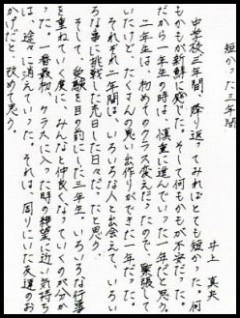 短かった三年間
井上 真央
中学校三年間、降り返ってみればとても短かった。何
もかもが新鮮に感じた。そして何もかもが不安だった。
だから一年生の時は、慎重に進んでいった一年だった。
二年生は、初めてのクラス変えだったので、緊張して
いたけど、たくさんの思い出作りができた一年だった。
それぞれ二年間は、いろいろな人と出会えて、いろい
ろな事に挑戦した充日した日々だったと思う。
そして、受験を目前にした三年生。いろいろな行事
を重ねていく度に、みんなと仲良くなっていくのが分か
った。一番最初、クラスに入った時の絶望に近い気持ち
は、途々に消えていった。それは、周りにいた友達のお
かげだと、改めて思う。